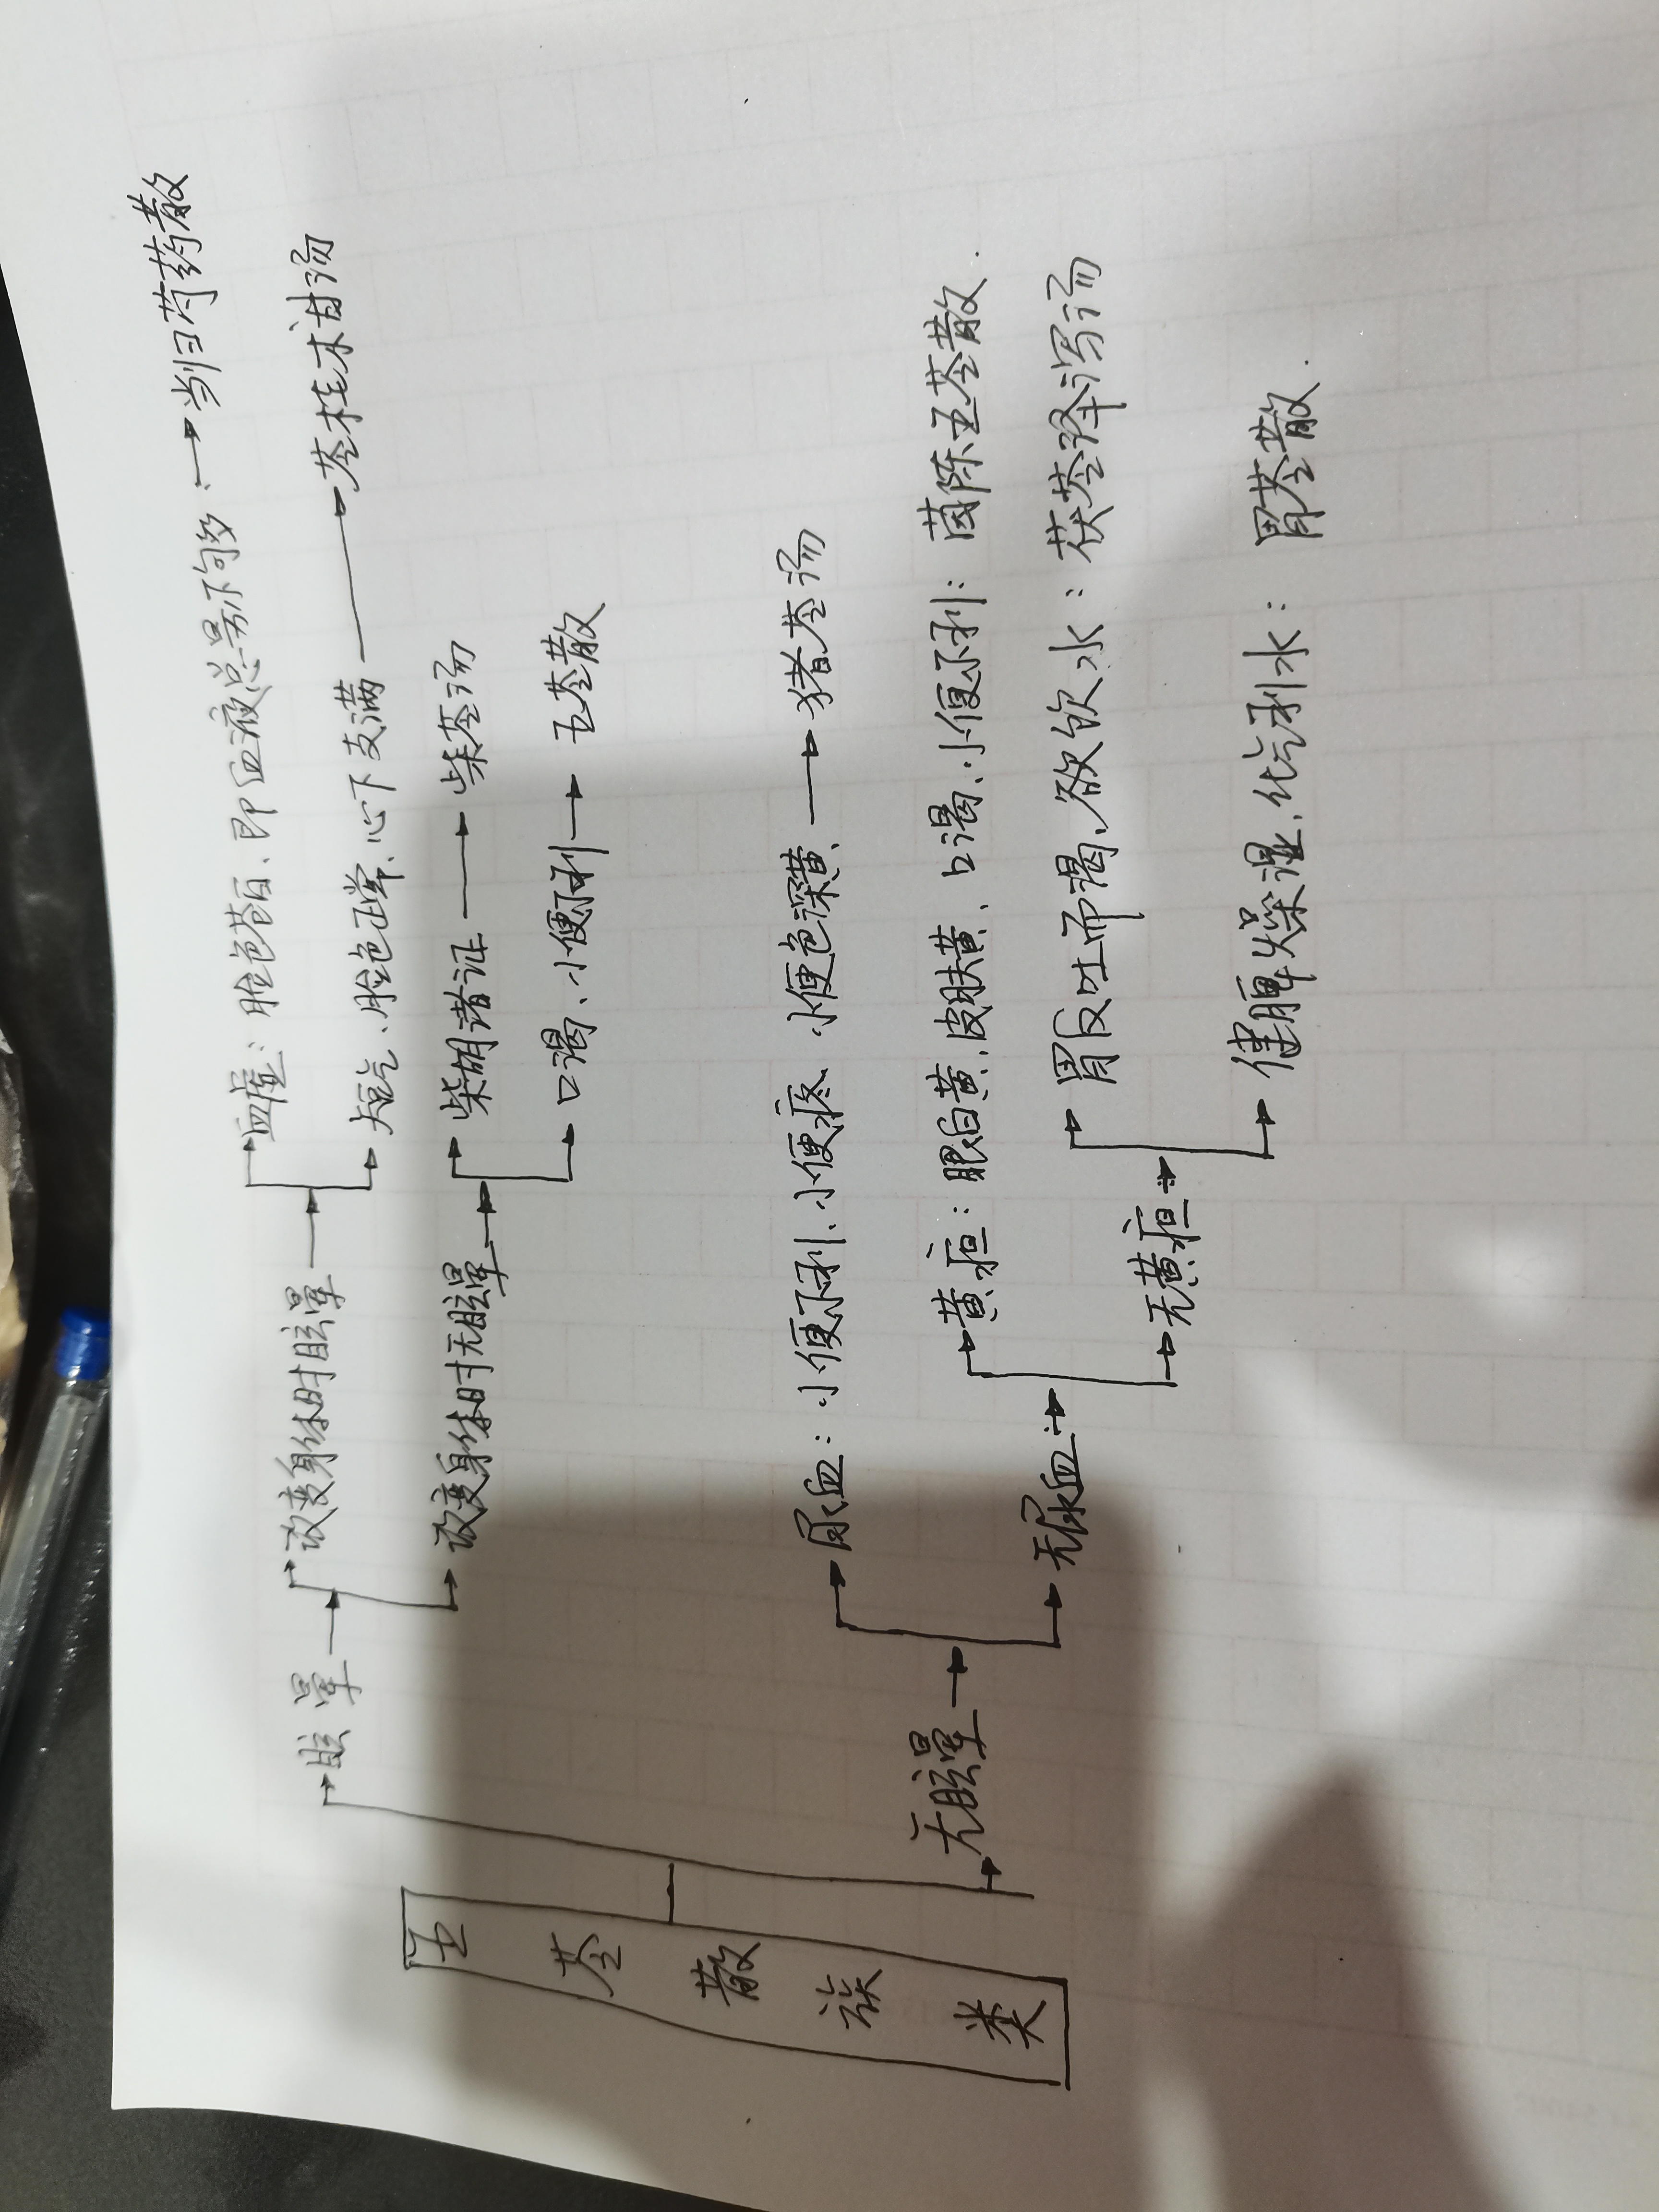 五苓散族类
眩晕
改变身体时眩晕
血虚：脸色苍白、即血液总量不够多、当归芍药散
短气、脸色正常、心下支满 苓桂术甘汤
改变身体时无眩晕
柴胡诸证 柴苓汤
口渴、小便不利 五苓散
无眩晕
尿血：小便不利、小便疼、小便色深黄、猪苓汤
无尿血
黄疸：眼白黄、皮肤黄、口渴、小便不利：茵陈五苓散．
无黄疸
胃反吐而渴、欲饮水：茯苓泽泻汤
健脾燥湿、化气利水：胃苓散．